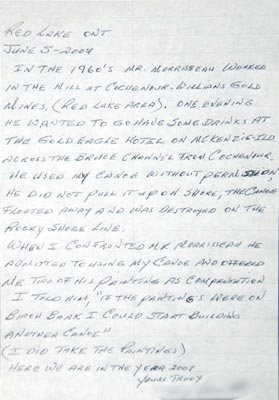 RED LAKE ONT
JUNE 5-2007
IN THE 1960'S MR. MORRISSEAU WORKED
IN THE MILL AT COCHENOUR. WILLIANS GOLD
MINES, (RED LAKE AREA). ONE EVENING
HE WANTED TO GO HAVE SOME DRINKS AT
THE GOLD EAGLE HOTEL ON MCKENZIE-ILD
ACROSS THE BRUCE CHANNEL FROM COCHENOUR.
HE USED MY CANOE WITHOUT PERMISION
HE DID NOT PULL IT UP ON SHORE, THE CANOE
FLOATED AWAY AND WAS DESTROYED ON THE
ROCKY SHORE LINE.
WHEN I CONFRONTED MR MORRISSEAU HE
ADMITTED TO USING MY CANOE AND OFFERED
ME TWO OF HIS PAINTING AS COMPENSATION
I TOLD HIM, "IF THE PAINTING'S WERE ON
BIRCH BARK I COULD START BUILDING
ANOTHER CANOE"
(I DID TAKE THE PAINTINGS)
HERE WE ARE IN THE YEAR 2007
YOURS TRULY